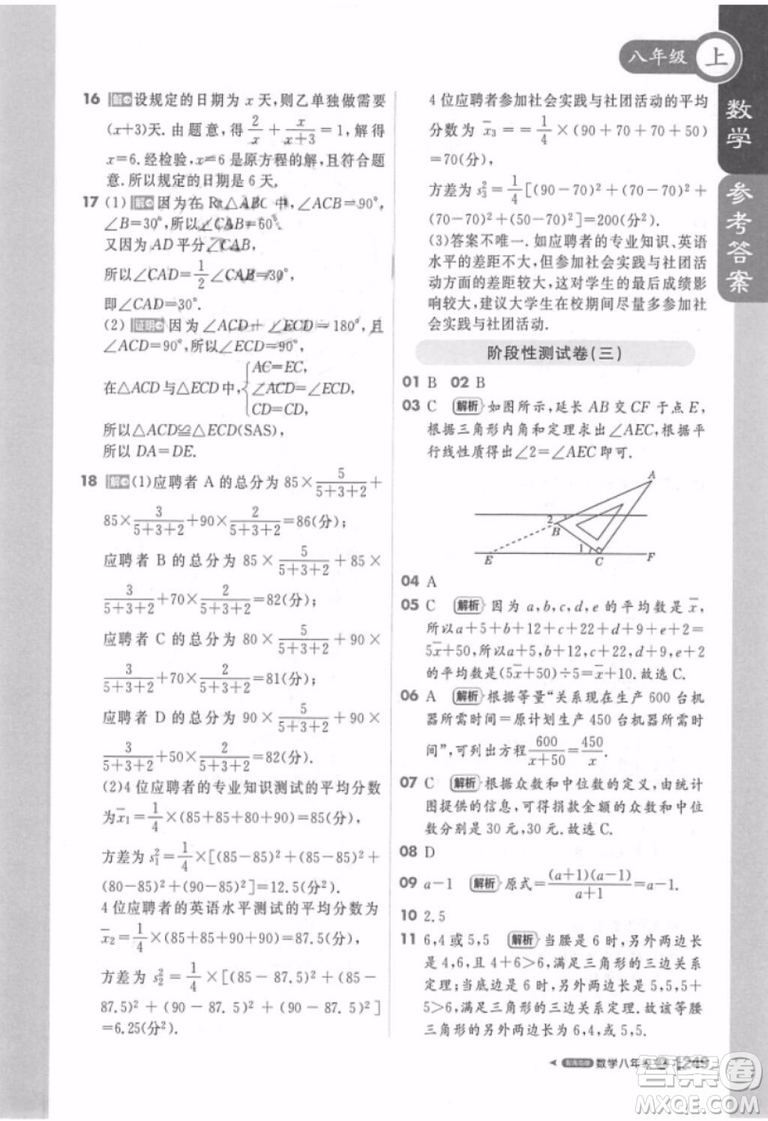 八年级 上
数学
参考答案
16 解 设规定的日期为 x 天，则乙单独做需要
(x+3)天. 由题意，得 2/x + x/(x+3) =1，解得
x=6. 经检验，x=6 是原方程的解，且符合题
意. 所以规定的日期是 6 天.
17 (1) 解 因为在 Rt△ABC 中，∠ACB=90°，
∠B=30°，所以∠CAB=60°.
又因为 AD 平分∠CAB，
所以∠CAD=1/2∠CAB=30°，
即∠CAD=30°.
(2) 证明 因为∠ACD+∠ECD=180°，且
∠ACD=90°，所以∠ECD=90°，
所以∠ACD=∠ECD.
在△ACD与△ECD中，{AC=EC, ∠ACD=∠ECD, CD=CD,
所以△ACD≌△ECD(SAS)，
所以 DA=DE.
18 解 (1)应聘者 A 的总分为 85× 5/(5+3+2) +
85× 3/(5+3+2) +90× 2/(5+3+2) =86(分)；
应聘者 B 的总分为 85× 5/(5+3+2) +85×
3/(5+3+2) +70× 2/(5+3+2) =82(分)；
应聘者 C 的总分为 80× 5/(5+3+2) +90×
3/(5+3+2) +70× 2/(5+3+2) =81(分)；
应聘者 D 的总分为 90× 5/(5+3+2) +90×
3/(5+3+2) +50× 2/(5+3+2) =82(分).
(2)4 位应聘者的专业知识测试的平均分数
为x̄₁=1/4×(85+85+80+90)=85(分)，
方差为 s₁²=1/4×[(85-85)²+(85-85)²+
(80-85)²+(90-85)²]=12.5(分²)；
4 位应聘者的英语水平测试的平均分数为
x̄₂=1/4×(85+85+90+90)=87.5(分)，
方差为 s₂²=1/4×[(85-87.5)²+(85-
87.5)²+(90-87.5)²+(90-87.5)²]
=6.25(分²)；
4 位应聘者参加社会实践与社团活动的平均
分数为 x̄₃=1/4×(90+70+70+50)
=70(分)，
方差为 s₃²=1/4×[(90-70)²+(70-70)²+
(70-70)²+(50-70)²]=200(分²).
(3)答案不唯一. 如应聘者的专业知识、英语
水平的差距不大，但参加社会实践与社团活
动的差距较大，这对学生的最后成绩影
响较大，建议大学生在校期间尽量多参加社
会实践与社团活动.
阶段性测试卷(三)
01 B 02 B
03 C 解析 如图所示，延长 AB 交 CF 于点 E，
根据三角形内角和定理求出∠AEC，根据平
行线性质得出∠2=∠AEC.
A
2
B
1
E C F
04 A
05 C 解析 因为 a,b,c,d,e 的平均数是 x̄，
所以a+5+b+5+c+5+d+5+e+5
的平均数是(5x̄+50)÷5=10. 故选 C.
06 A 解析 根据等量“关系现在生产 600 台机
器所需时间=原计划生产 450 台机器所需时
间”，可列出方程 600/(x+50) = 450/x.
07 C 解析 根据众数和中位数的定义，由统计
图提供的信息，可得捐款金额的众数和中位
数分别是 30 元，30 元，故选 C.
08 D
09 a-1 解析 原式= (a+1)(a-1)/(a+1) =a-1.
10 2,5
11 6,4 或 5,5 解析 当腰是 6 时，另外两边长
是 4,6，满足三角形的三边关系
定理；当底边是 6 时，另外两边长是 5,5，5+5
>6，满足三角形的三边关系
定理，故该等腰三角形的另外两边为
6,4 或 5,5.
数学八年级
答案圈
MXQE.COM